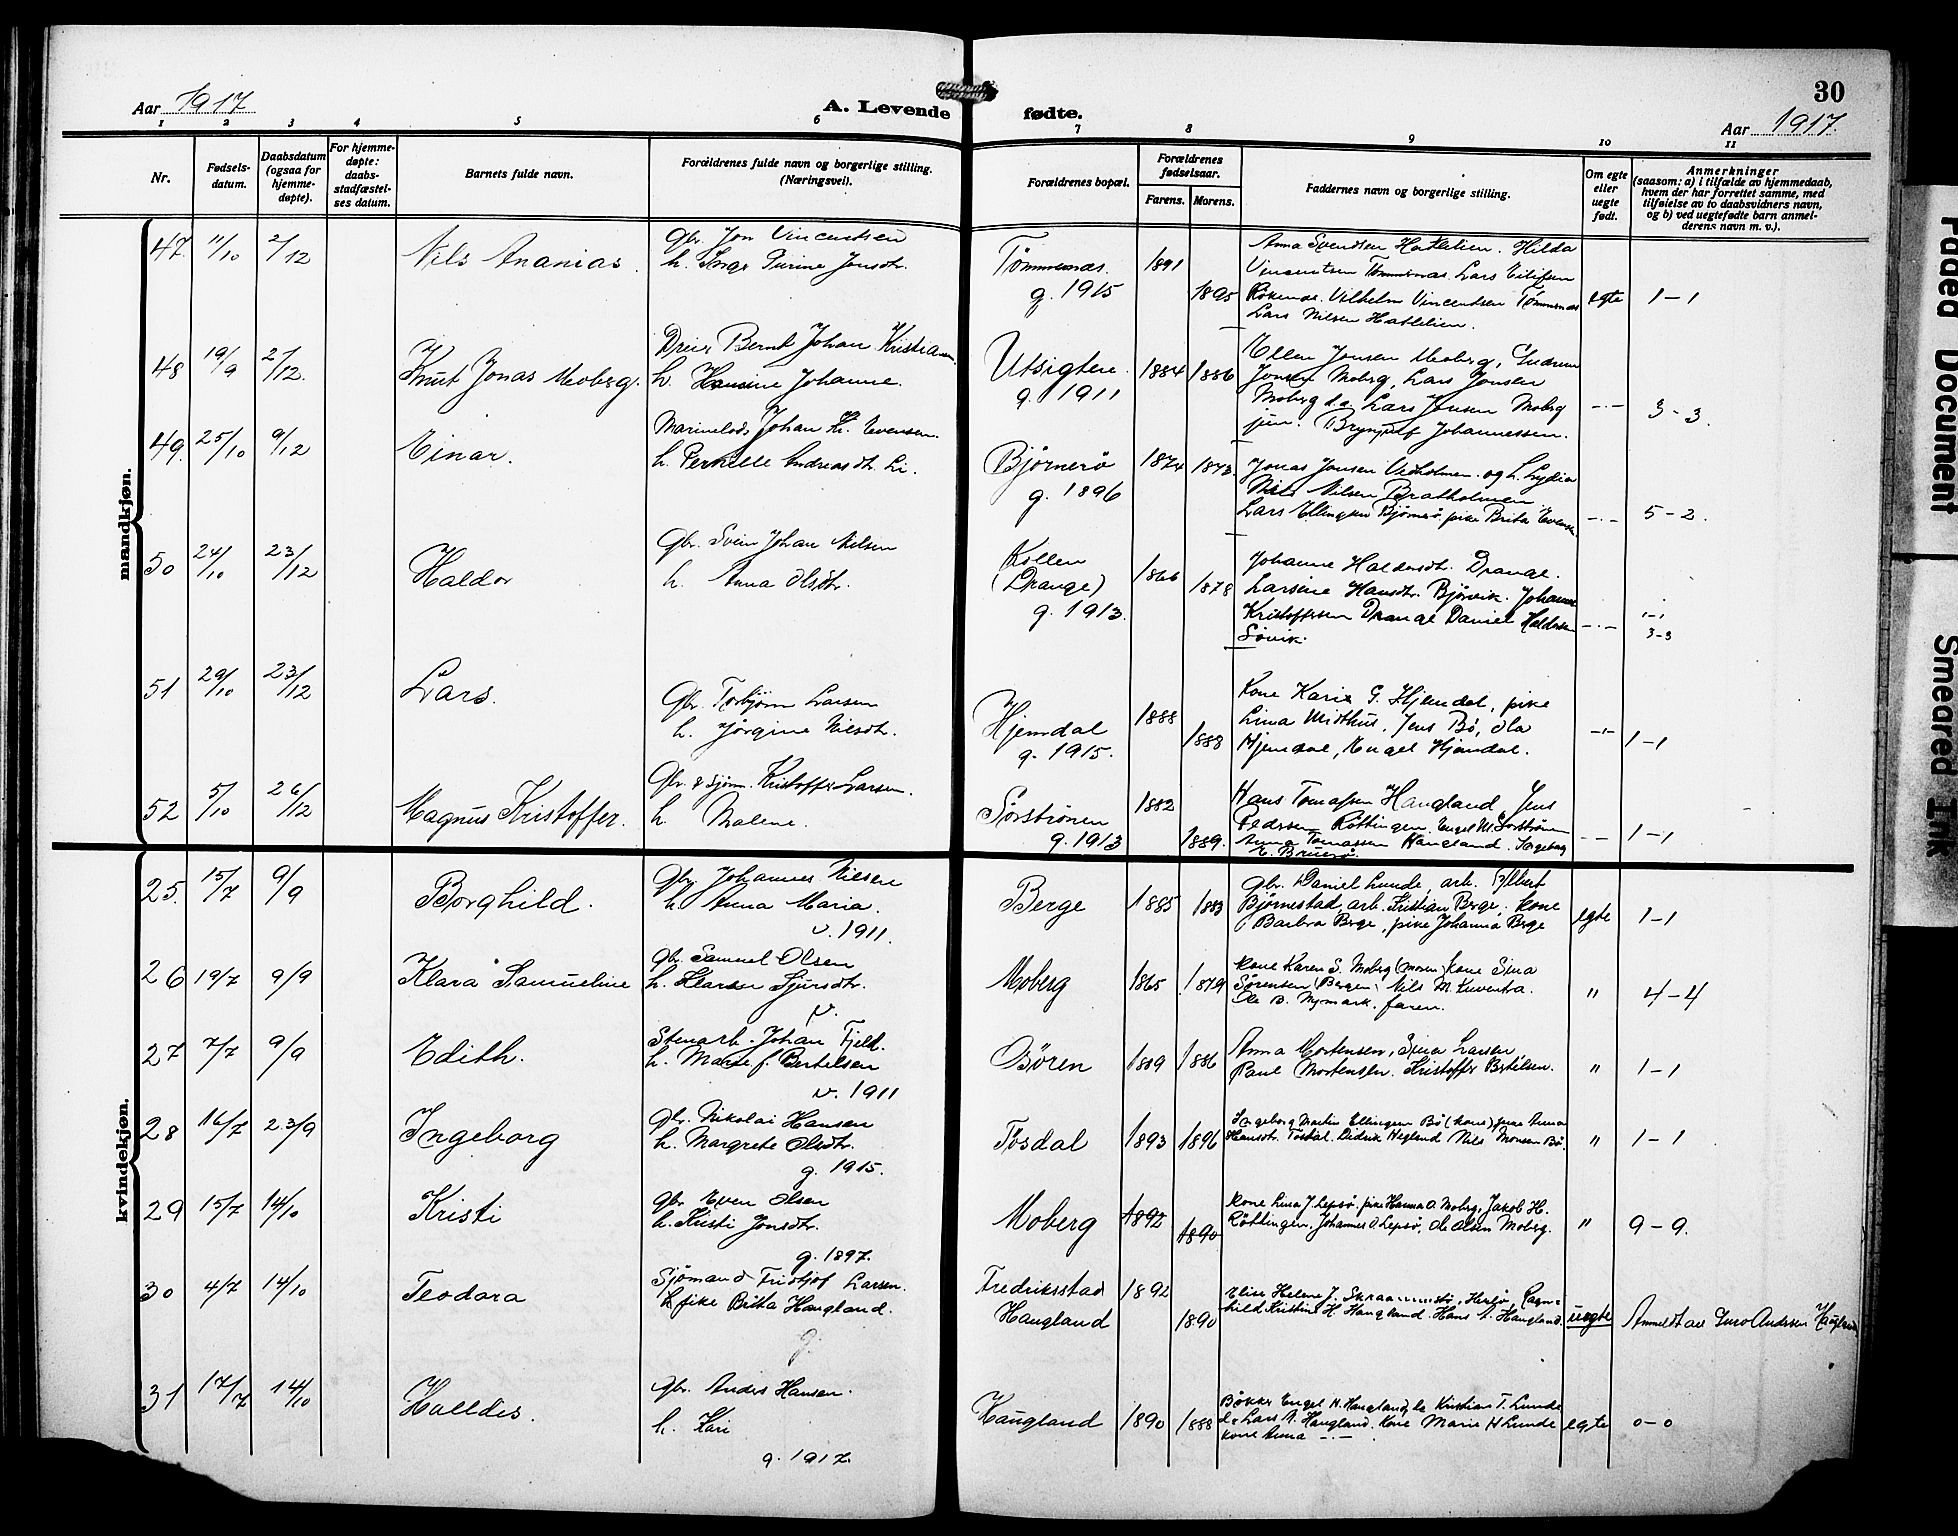 30
Aar 1917
A. Levende fødte.
Aar 1917.
1 2 3 4 5 6 7 8 9 10 11
Nr.
Fødsels-
datum.
Daabsdatum
(ogsaa for
hjemme-
døpte).
For hjemme-
døpte:
daabs-
stadfæstel-
ses datum.
Barnets fulde navn.
Forældrenes fulde navn og borgerlige stilling.
(Næringsvei).
Forældrenes bopæl.
Forældrenes
fødselsaar.
Farens. Morens.
Faddernes navn og borgerlige stilling.
Om egte
eller
uegte
født.
Anmerkninger
(saasom: a) i tilfælde av hjemmedaab,
hvem der har forrettet samme, med
tilføielse av to daabsvidners navn,
og b) ved uegtefødte barn anmel-
derens navn m. v.).
mandkjøn.
47. 11/10 2/12 Nils Ananias. Gbr. Jon Vincentsen
h. Inga Purine Jonsdtr.
Tømmernæs. g. 1915 1891 1895
Anna Svendsen Hatlelien. Hilda
Vincentsen Tømmernæs. Lars Eilifsen
Røkenes. Vilhelm Vincendsen Tømmernæs
Lars Nilsen Hatlelien.
egte 1-1
48 19/9 2/12. Knut Jonas Moberg. Dreier Bernt Johan Kristiansen
h. Hansine Johanne.
Utsigten. g. 1911 1884 1886
Ellen Jonsen Moberg, Gudrun
Jonsen Moberg, Lars Jonsen
Moberg d.a. Lars Jonsen Moberg
jun. Brynjulf Johannessen.
-.- 3-3.
49. 25/10 9/12 Einar. Marinelods Johan Kr. Evensen.
h. Pernille Andreasdtr. Li.
Bjørnerø g. 1896 1874 1873
Jonas Jonsen Vedholmen. og h. Lydia
Nils Nilsen Bratholmen
Lars Ellingsen Bjørnerø. pike Brita Evensen
-.- 5-2.
50 24/10 23/12 Haldor Gbr. Svein Johan Nilsen
h. Anna Olsdtr.
Kollen
(Drange)
g. 1913. 1866 1878
Johanne Haldorsdtr. Drange.
Larsine Hansdtr. Bjørvik. Johannes
Kristoffersen Drange Daniel Haldorsen
Søvik.
-.- 1-1
3-3
51 29/10 23/12 Lars. Gbr. Torbjørn Larsen
h. Jørgine Nilsdtr.
Hjemdal g. 1915. 1888 1888
Kone Karie G. Hjemdal, pike
Lina Midthus, Jens Bø, Ola
Hjemdal, Engel Hjemdal.
-"- 1-1
52 5/10 26/12 Magnus Kristoffer. Gbr. & sjøm. Kristoffer Larsen.
h. Malene.
Sørstrønen g. 1913 1882 1889.
Hans Tomassen Haugland, Jens
Pedersen Røttingen. Engel M. Sørstrønen
Anna Tomassen Haugland. Ingeborg
E. Bruerø.
-- 1-1
kvindekjøn.
25. 15/7 9/9 Borghild. Gbr. Johannes Nilsen
h. Anna Maria.
v. 1911.
Berge 1885 1883
Gbr. Daniel Lunde, arb. Albert
Bjørnestad, arb. Kristian Berge, kone
Barbra Berge, pike Johanna Berge
egte 1-1
26 19/7 9/9 Klara Samueline gbr. Samuel Olsen
h. Klarsen Sjursdtr.
v.
Moberg 1865 1879
Kone Karen S. Moberg (moren) kone Sina
Sørensen (Bergen) Nils M. Kuventra.
Ole B. Nymark. faren.
" 4-4
27 7/7 9/9 Edith. Stenarb. Johan Fjeld.
h. Marie f. Bertelsen
v. 1911
Børen 1889 1886
Anna Mortensen, Sina Larsen
Paul Mortensen. Kristoffer Bertelsen.
" 1-1
28 16/7 23/9 Ingeborg gbr. Nikolai Hansen
h. Margrete Olsdtr.
g. 1915.
Tøsdal 1893 1896
Ingeborg Martin Ellingsen Bø (kone) pike Anna
Hansdtr. Tøsdal. Didrik Hegland Nils Monsen Bø.
" 1-1
29 15/7 14/10 Kristi gbr. Even Olsen
h. Kristi Jonsdtr.
g. 1897.
Moberg 1892 1890
Kone Lina J. Lepsø. pike Hanna O. Moberg, Jakob H.
Røttingen. Johannes O. Lepsø, Ole Olsen Moberg.
" 9-9.
30 4/7 14/10 Teodora Sjømand Fridtjof Larsen.
pike Brita Haugland.
g.
Fredriksstad
Haugland 1892 1890
Elise Helene J. Herlø, Ragn-
hild Kristine H. Haugland. Hans A. Haugland.
uegte Anmeldt av Guro Andersen Haugland
31 17/7 14/10 Halldis. gbr. Anders Hansen.
h. Kari
g. 1917.
Haugland 1890 1888
Bøkker Engel H. Haugland, do Kristian T. Lunde
do Lars A. Haugland. Kone Marie H Lunde
kone Anna -.-
egte 0-0
Faded Document
Smeared Ink